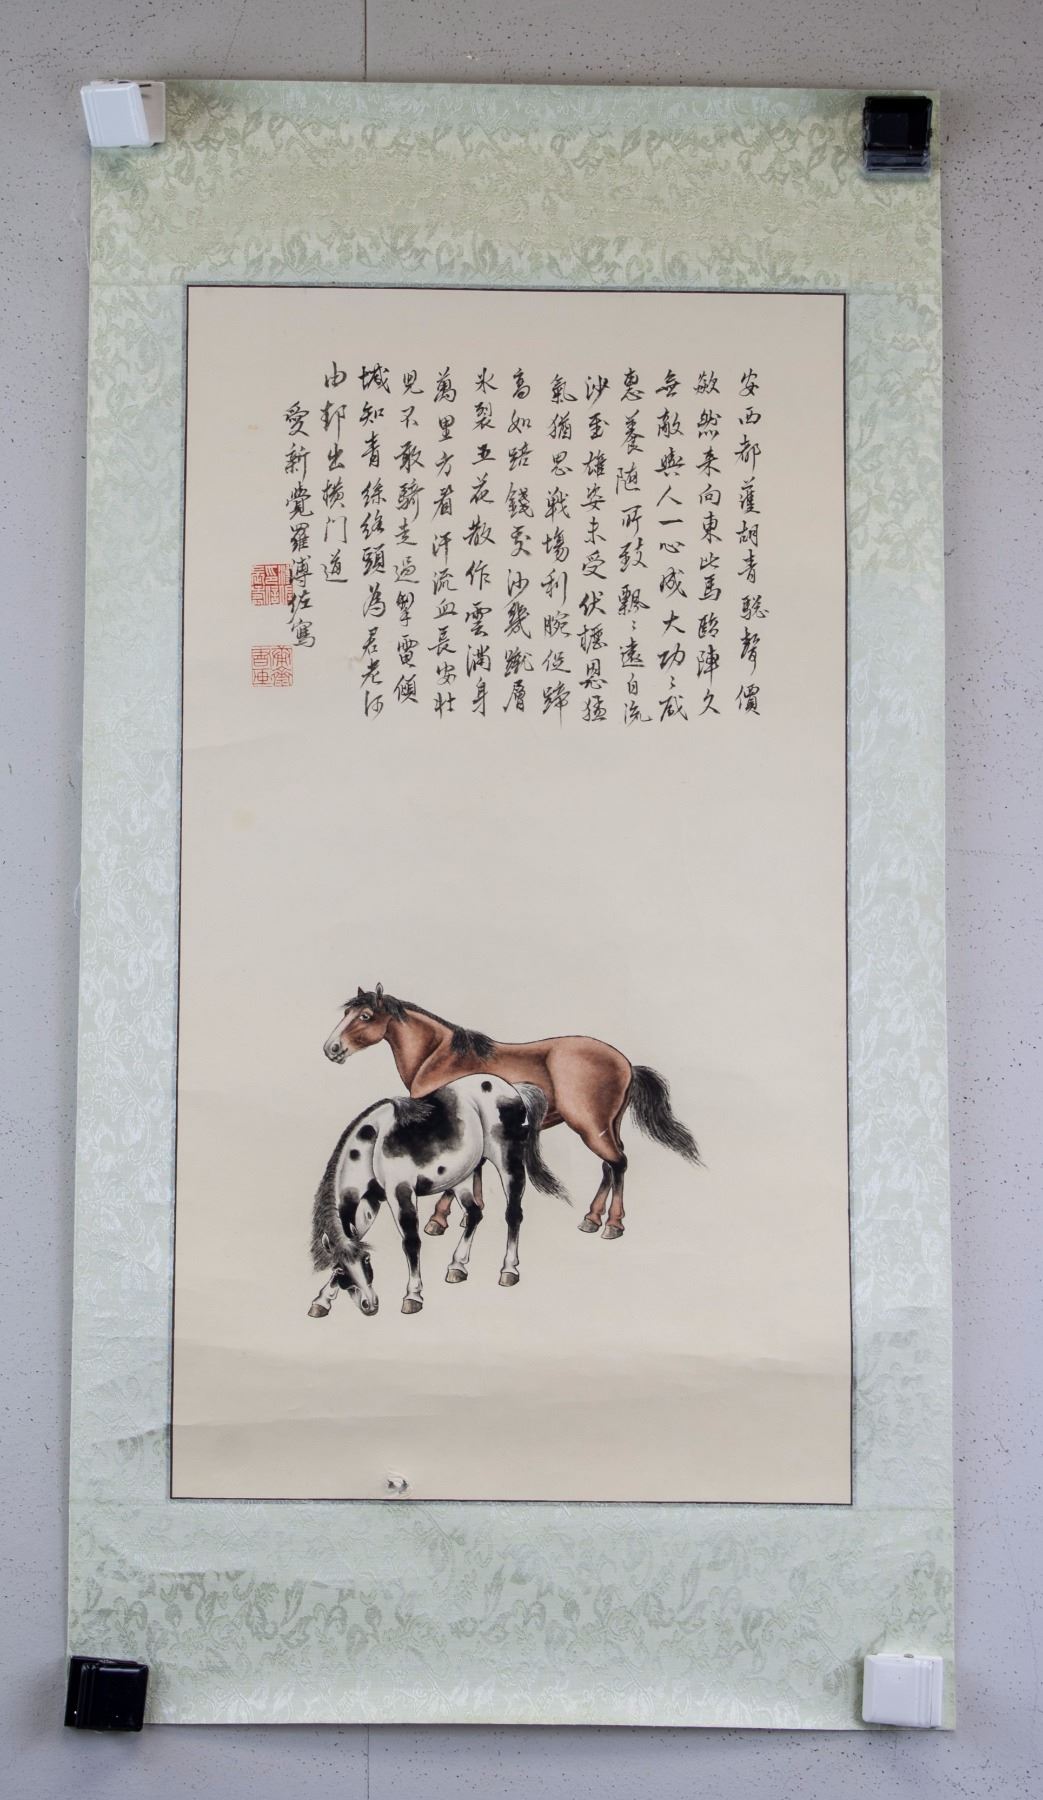 安西都護胡青驄聲價
欻然来向東此馬臨陣久
無敵與人一心成大功〻成
惠養随所致飄〻遠自流
沙至雄姿未受伏櫪恩猛
氣猶思戰場利腕促蹄
高如踣鐵交河幾蹴層
氷裂五花散作雲滿身
萬里方看汗流血長安壯
兒不敢騎走過掣電傾
城知青絲絡頭為君老何
由却出横门道
愛新覺羅溥佐寫